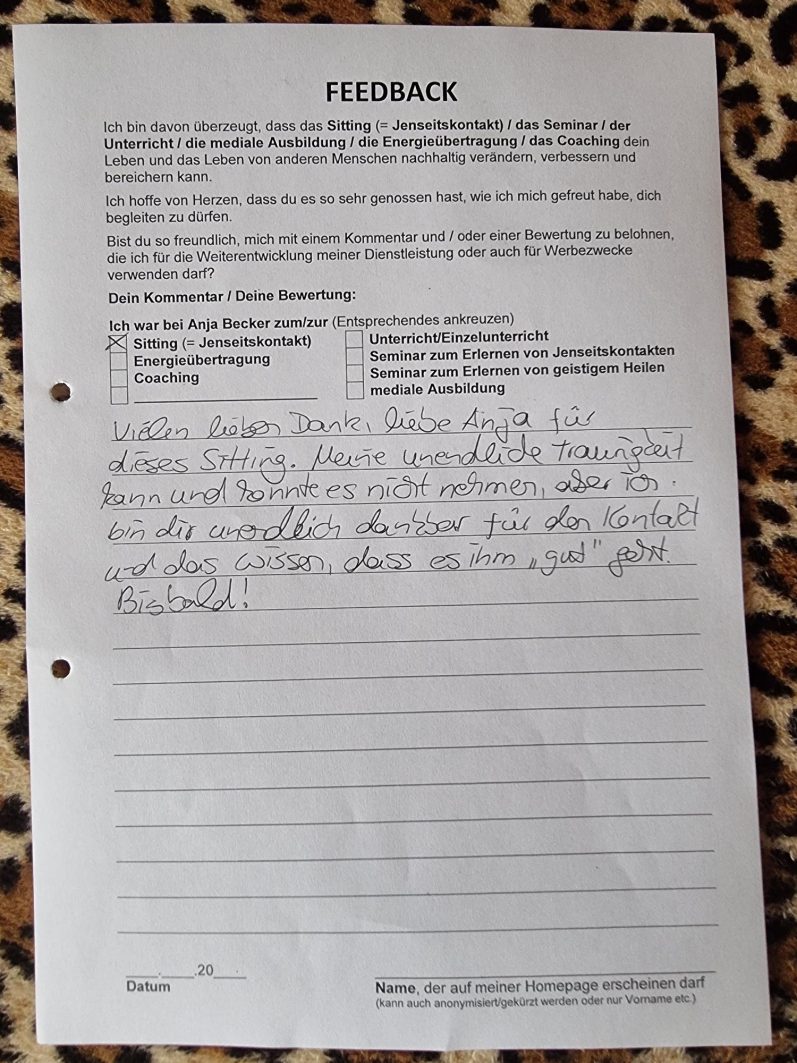 FEEDBACK
Ich bin davon überzeugt, dass das Sitting (= Jenseitskontakt) / das Seminar / der
Unterricht / die mediale Ausbildung / die Energieübertragung / das Coaching dein
Leben und das Leben von anderen Menschen nachhaltig verändern, verbessern und
bereichern kann.
Ich hoffe von Herzen, dass du es so sehr genossen hast, wie ich mich gefreut habe, dich
begleiten zu dürfen.
Bist du so freundlich, mich mit einem Kommentar und / oder einer Bewertung zu belohnen,
die ich für die Weiterentwicklung meiner Dienstleistung oder auch für Werbezwecke
verwenden darf?
Dein Kommentar / Deine Bewertung:
Ich war bei Anja Becker zum/zur (Entsprechendes ankreuzen)
Sitting (= Jenseitskontakt)
Energieübertragung
Coaching
Unterricht/Einzelunterricht
Seminar zum Erlernen von Jenseitskontakten
Seminar zum Erlernen von geistigem Heilen
mediale Ausbildung
Vielen lieben Dank, liebe Anja für
dieses Sitting. Meine unendliche Traurigkeit
kann und konnte es nicht nehmen, aber ich
bin dir unendlich dankbar für den Kontakt
und das Wissen, dass es ihm „gut" geht.
Bis bald!
____.____.20____
Datum
Name, der auf meiner Homepage erscheinen darf
(kann auch anonymisiert/gekürzt werden oder nur Vorname etc.)